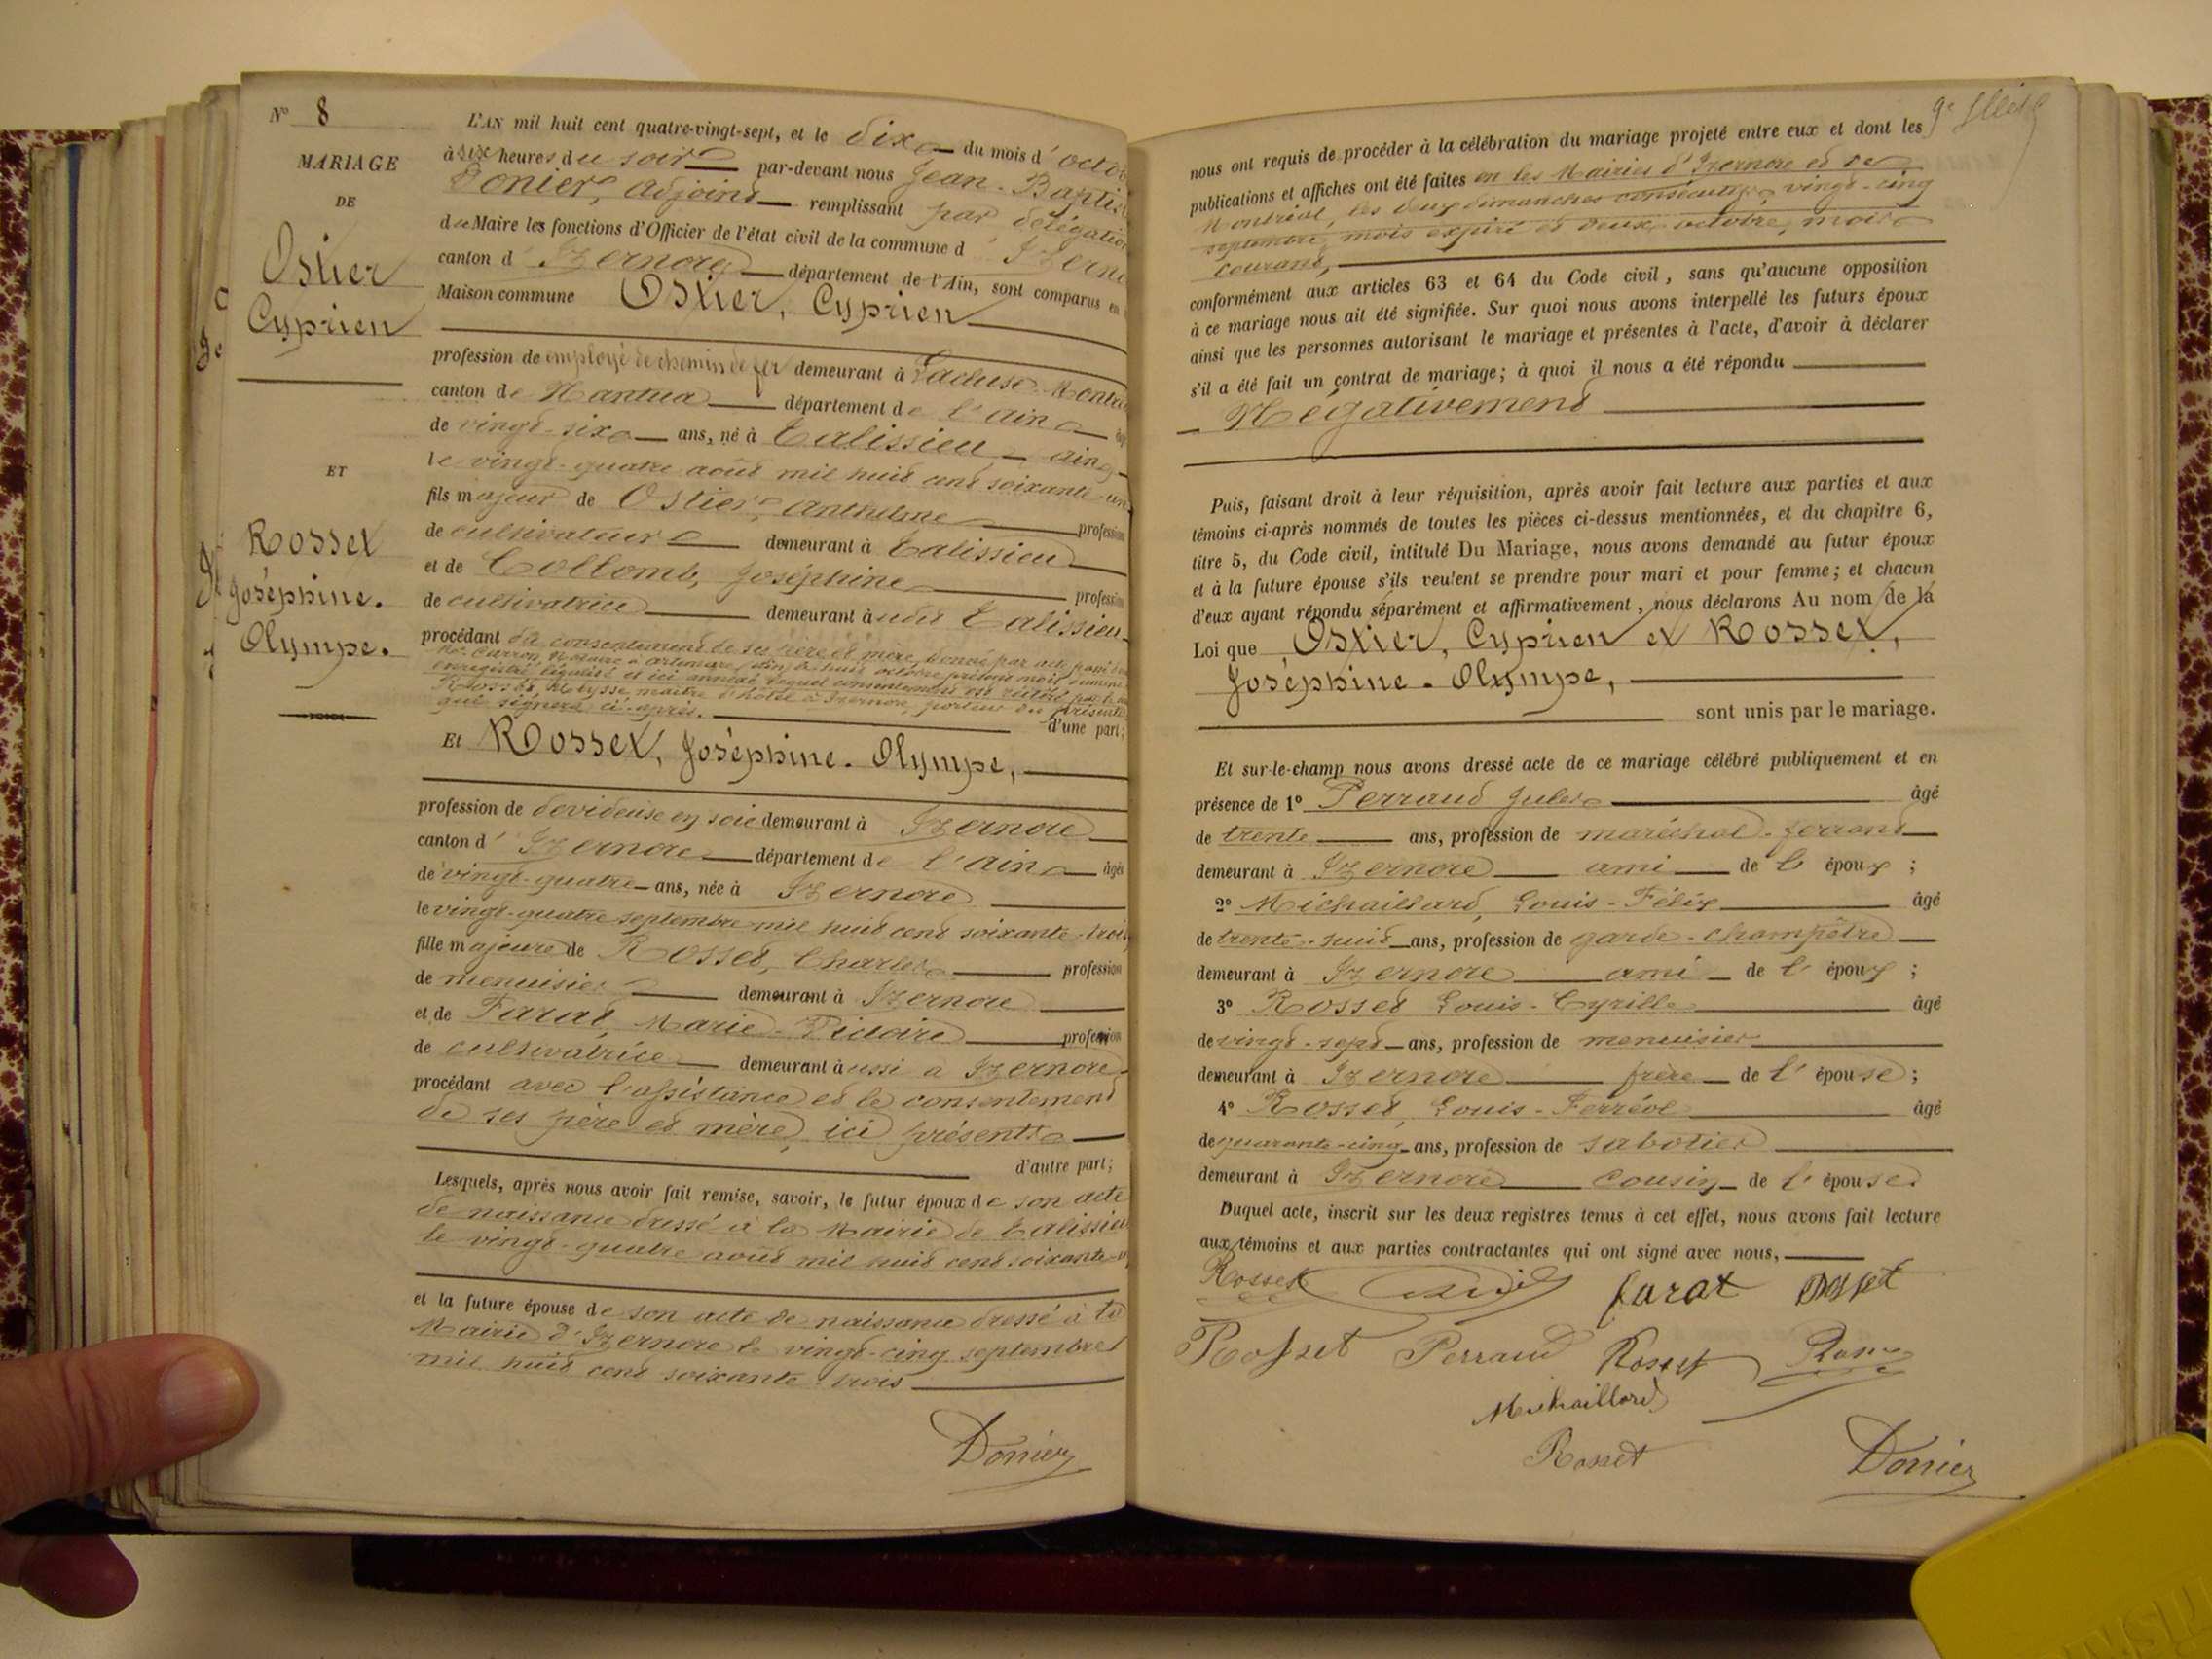 N° 8
MARIAGE
DE
Ostier
Cyprien
ET
Rosset
Joséphine.
Olympe.
L'AN mil huit cent quatre-vingt-sept, et le dix du mois d'octo
à six heures du soir par-devant nous Jean-Baptis
Donier, adjoint remplissant par délégation
du Maire les fonctions d'Officier de l'état civil de la commune d'Izerno
canton d'Izernore département de l'Ain, sont comparus en
Maison commune Ostier, Cyprien
profession de employé de chemin de fer demeurant à Lacluse-Montré
canton de Nantua département de l'ain
de vingt-six ans, né à Talissieu ain
le vingt-quatre août mil huit cent soixante-un
fils majeur de Ostier, Anthelme profession
de cultivateur demeurant à Talissieu
et de Collomb, Joséphine profession
de cultivatrice demeurant à audit Talissieu
procédant du consentement de ses père et mère, donné par acte
Me Carron, Notaire à Artemare, (Ain) le huit octobre présent mois
enregistré, légalisé et ici annexé, lequel consentement est
Rosset, maitre d'hôtel à Izernore, porteur du
qui signera ci-après. d'une part;
Et Rosset, Joséphine-Olympe,
profession de dévideuse en soie demeurant à Izernore
canton d'Izernore département de l'ain âgée
de vingt-quatre ans, née à Izernore
le vingt-quatre septembre mil huit cent soixante-trois
fille majeure de Rosset, Charles profession
de menuisier demeurant à Izernore
et de Farat, Marie-Victoire profession
de cultivatrice demeurant aussi à Izernore
procédant avec l'assistance et le consentement
de ses père et mère, ici présents
d'autre part;
Lesquels, après nous avoir fait remise, savoir, le futur époux de son acte
de naissance dressé à la Mairie de Talissieu
le vingt-quatre août mil huit cent soixante-u
et la future épouse de son acte de naissance dressé à la
Mairie d'Izernore le vingt-cinq septembre
mil huit cent soixante-trois
Donier
nous ont requis de procéder à la célébration du mariage projeté entre eux et dont les
publications et affiches ont été faites en les Mairies d'Izernore et de
Montréal, les deux dimanches consécutifs, vingt-cinq
septembre, mois expiré et deux octobre, mois
courant,
conformément aux articles 63 et 64 du Code civil, sans qu'aucune opposition
à ce mariage nous ait été signifiée. Sur quoi nous avons interpellé les futurs époux
ainsi que les personnes autorisant le mariage et présentes à l'acte, d'avoir à déclarer
s'il a été fait un contrat de mariage; à quoi il nous a été répondu
Négativement
Puis, faisant droit à leur réquisition, après avoir fait lecture aux parties et aux
témoins ci-après nommés de toutes les pièces ci-dessus mentionnées, et du chapitre 6,
titre 5, du Code civil, intitulé Du Mariage, nous avons demandé au futur époux
et à la future épouse s'ils veulent se prendre pour mari et pour femme; et chacun
d'eux ayant répondu séparément et affirmativement, nous déclarons Au nom de la
Loi que Ostier, Cyprien et Rosset,
Joséphine-Olympe,
sont unis par le mariage.
Et sur-le-champ nous avons dressé acte de ce mariage célébré publiquement et en
présence de 1° Perraud Jules âgé
de trente ans, profession de maréchal-ferrant
demeurant à Izernore ami de l'époux;
2° Michaillard, Louis-Félix âgé
de trente-huit ans, profession de garde-champêtre
demeurant à Izernore ami de l'époux;
3° Rosset Louis-Cyrille âgé
de vingt-sept ans, profession de menuisier
demeurant à Izernore frère de l'épouse;
4° Rosset, Louis-Ferréol âgé
de quarante-cinq ans, profession de sabotier
demeurant à Izernore cousin de l'épouse.
Duquel acte, inscrit sur les deux registres tenus à cet effet, nous avons fait lecture
aux témoins et aux parties contractantes qui ont signé avec nous,
Rosset farat
Rosset Perraud Rosset
Michaillard
Rosset Donier